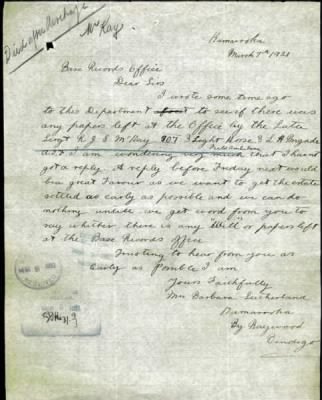 Mc Kay
Kamarooka
March 7th 1921
Base Records Office
Dear Sirs
I wrote some time ago
to this Department to see if there was
any papers left at the Office by the Late
Sergt R. G. S. McKay 907 3 Light Horse 3 L H Brigade
I am wondering very much that I have not
got a reply. A reply before Friday next would
be a great Favour as we want to get the estate
settled as early as possible and we can do
nothing untill we get word from you to
say whether there is any "Will" or papers left
at the Base Records Office
Trusting to hear from you as
early as possible I am
Yours Faithfully
Mrs Barbara Sutherland
Kamarooka
By Raywood
Bendigo